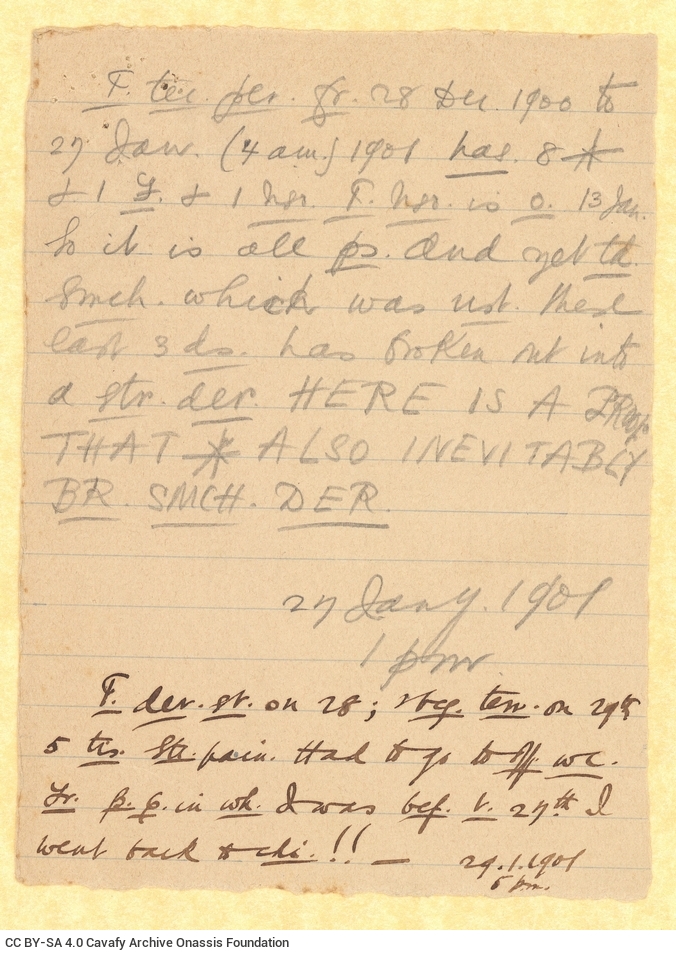 T. ter. per. fr. 28 Dec. 1900 to
27 Jan. (4 am.) 1901 has. 8 *
& 1 & 1 hsr. T. hsr. is o. 13 Jan.
So it is all ps. And yet td.
smch. which was ust. these
last 3 ds. has broken out into
a str. der. HERE IS A PROOF
THAT * ALSO INEVITABLY
BR. SMCH. DER.
27 Jany. 1901
1 pm.
T. der. st. on 28; on 29th
5 tis. Str. pain. Had to go to off. wc.
in wh. I was bef. 27th I
went back to chi.!! —
29.1.1901
5 p.m.
CC BY-SA 4.0 Cavafy Archive Onassis Foundation